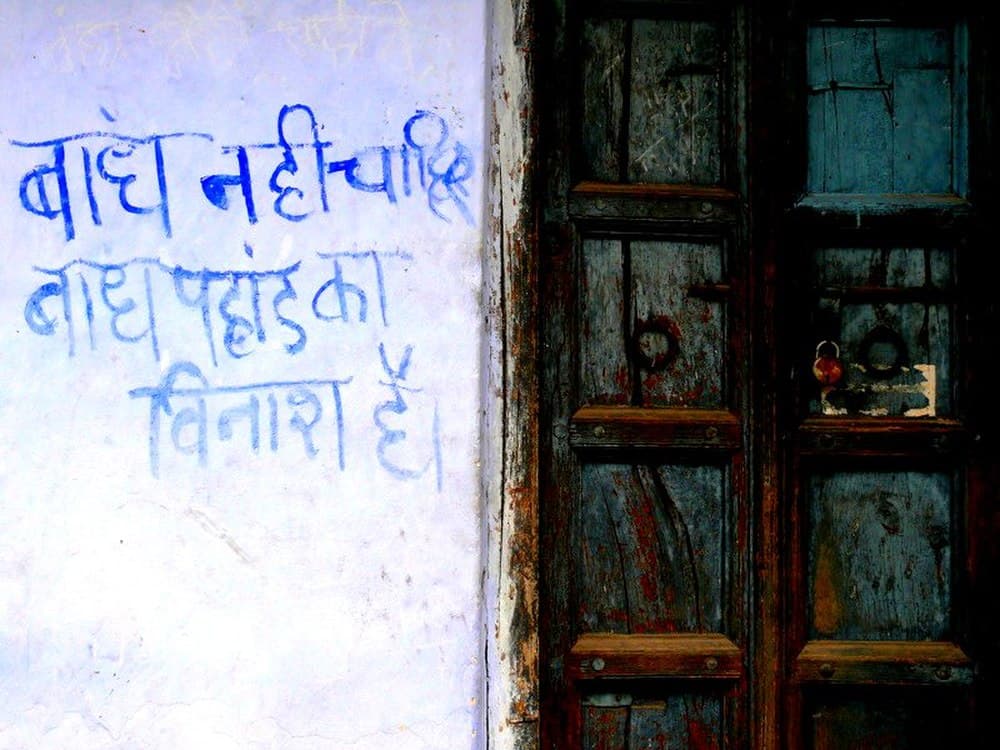 बांध नही चाहिए
बांध पहांड का
विनाश है।